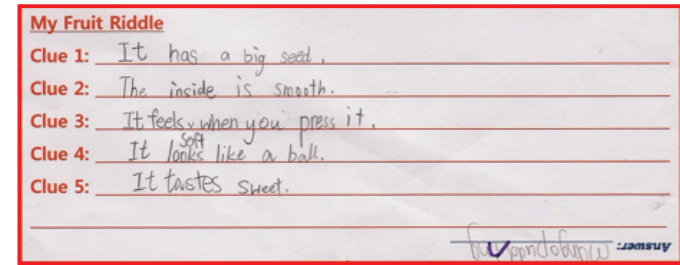 My Fruit Riddle
Clue 1: It has a big seed.
Clue 2: The inside is smooth.
Clue 3: It feels soft when you press it.
Clue 4: It looks like a ball.
Clue 5: It tastes sweet.
Answer: mango pudding